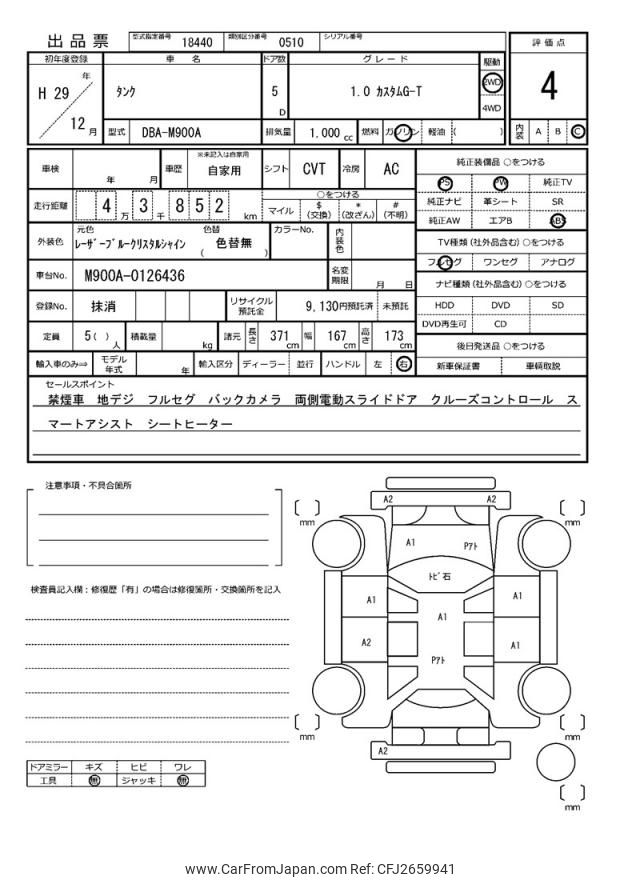 出品票 型式指定番号 18440 類別区分番号 0510 シリアル番号
初年度登録 車名 ドア数 グレード 駆動 評価点
H 29 年 12 月 タンク 5 D 1.0 カスタムG-T 2WD 4WD 4
型式 DBA-M900A 排気量 1,000 cc 燃料 ガソリン 軽油 ( ) 内装 A B C
車検 年 月 車歴 ※未記入は自家用 自家用 シフト CVT 冷房 AC
純正装備品 ○をつける
PS PW 純正TV
純正ナビ 革シート SR
純正AW エアB ABS
走行距離 4 万 3 千 8 5 2 km
○をつける
マイル $ (交換) * (改ざん) # (不明)
TV種類 (社外品含む) ○をつける
フルセグ ワンセグ アナログ
外装色 元色 レーザーブルークリスタルシャイン 色替 ( 色替無 ) カラーNo. 内装色
車台No. M900A-0126436 名変期限 月 日
ナビ種類 (社外品含む) ○をつける
HDD DVD SD
DVD再生可 CD
登録No. 抹消 リサイクル預託金 9,130円預託済 未預託
定員 5( ) 人 積載量 kg 諸元 長さ 371 cm 幅 167 cm 高さ 173 cm
後日発送品 ○をつける
新車保証書 車輌取説
輸入車のみ⇒ モデル年式 年 輸入区分 ディーラー 並行 ハンドル 左 右
セールスポイント
禁煙車 地デジ フルセグ バックカメラ 両側電動スライドドア クルーズコントロール ス
マートアシスト シートヒーター
注意事項・不具合箇所
検査員記入欄：修復歴「有」の場合は修復箇所・交換箇所を記入
A2 A2
mm mm
A1 Pアト
トビ石
A1 A1 A1
A2 Pアト A1
mm mm
A2
mm
ドアミラー キズ ヒビ ワレ
工具 無 ジャッキ 無
www.CarFromJapan.com Ref: CFJ2659941